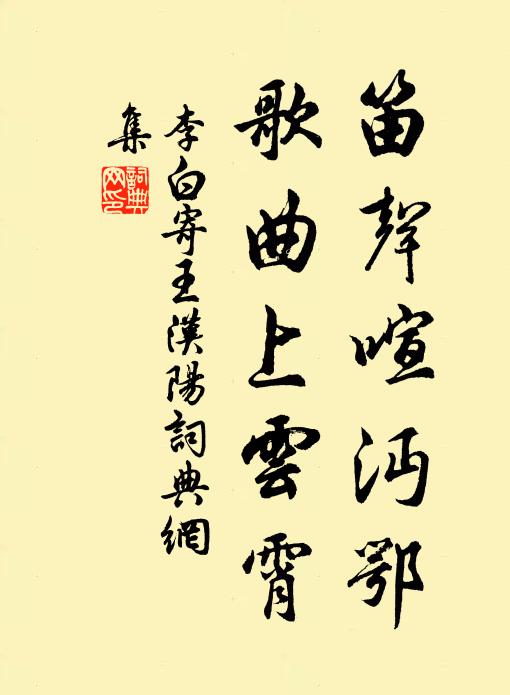 笛聲喧沔鄂
歌曲上雲霄
李白寄王漢陽詞典網
集
詞典網印